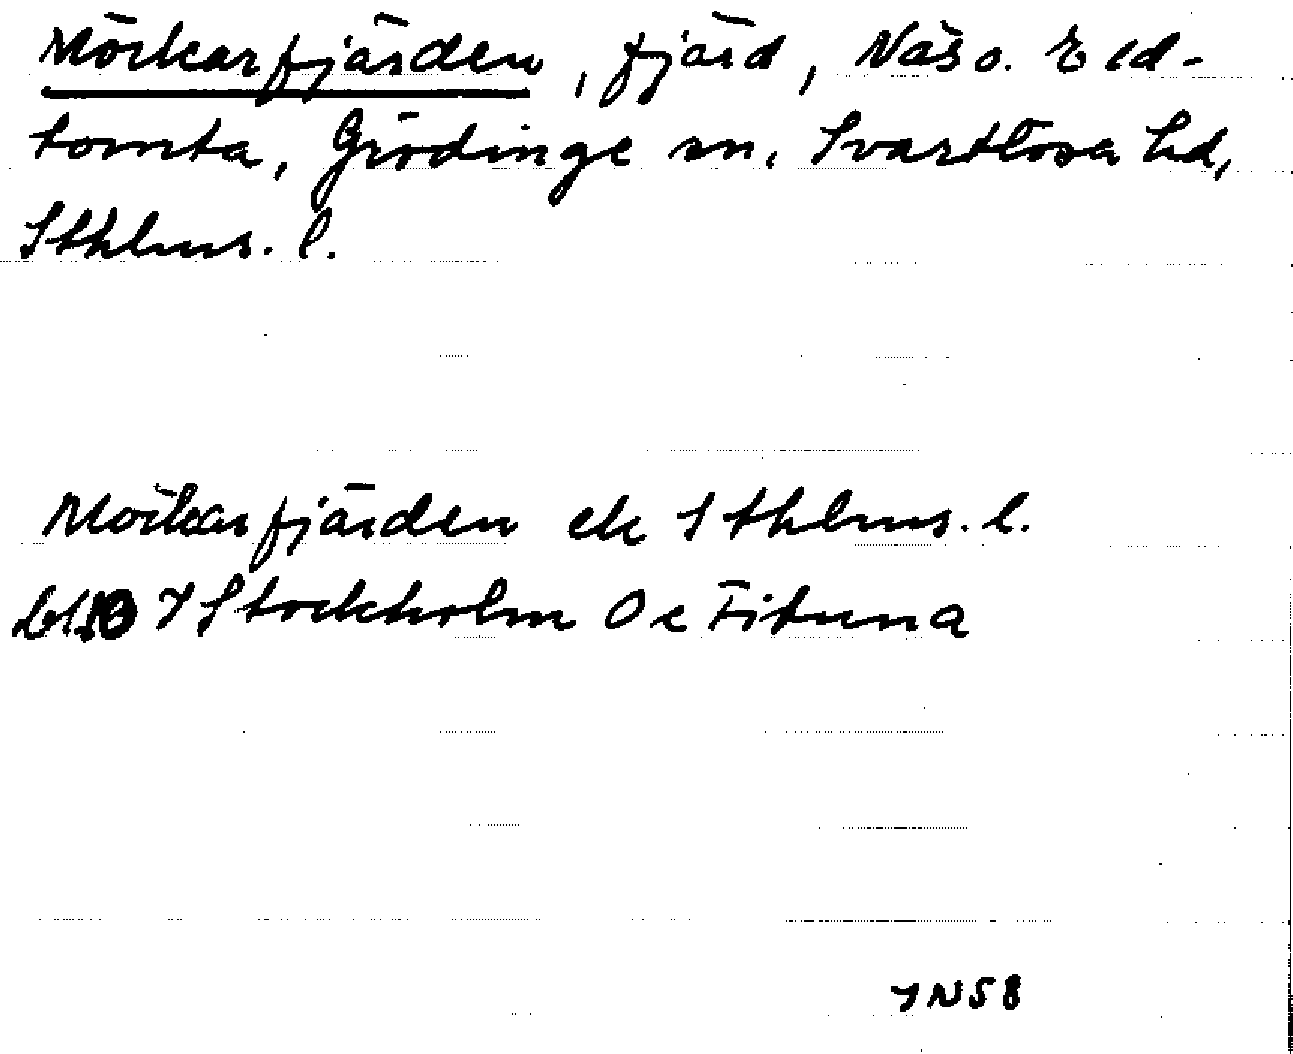 Mörkarfjärden, fjärd, Näs o. Eld-
tomta, Grödinge sn, Svartlösa hd,
Sthlms. l.
Mörkarfjärden ek Sthlms. l.
bl. 10 Stockholm Oc Fituna